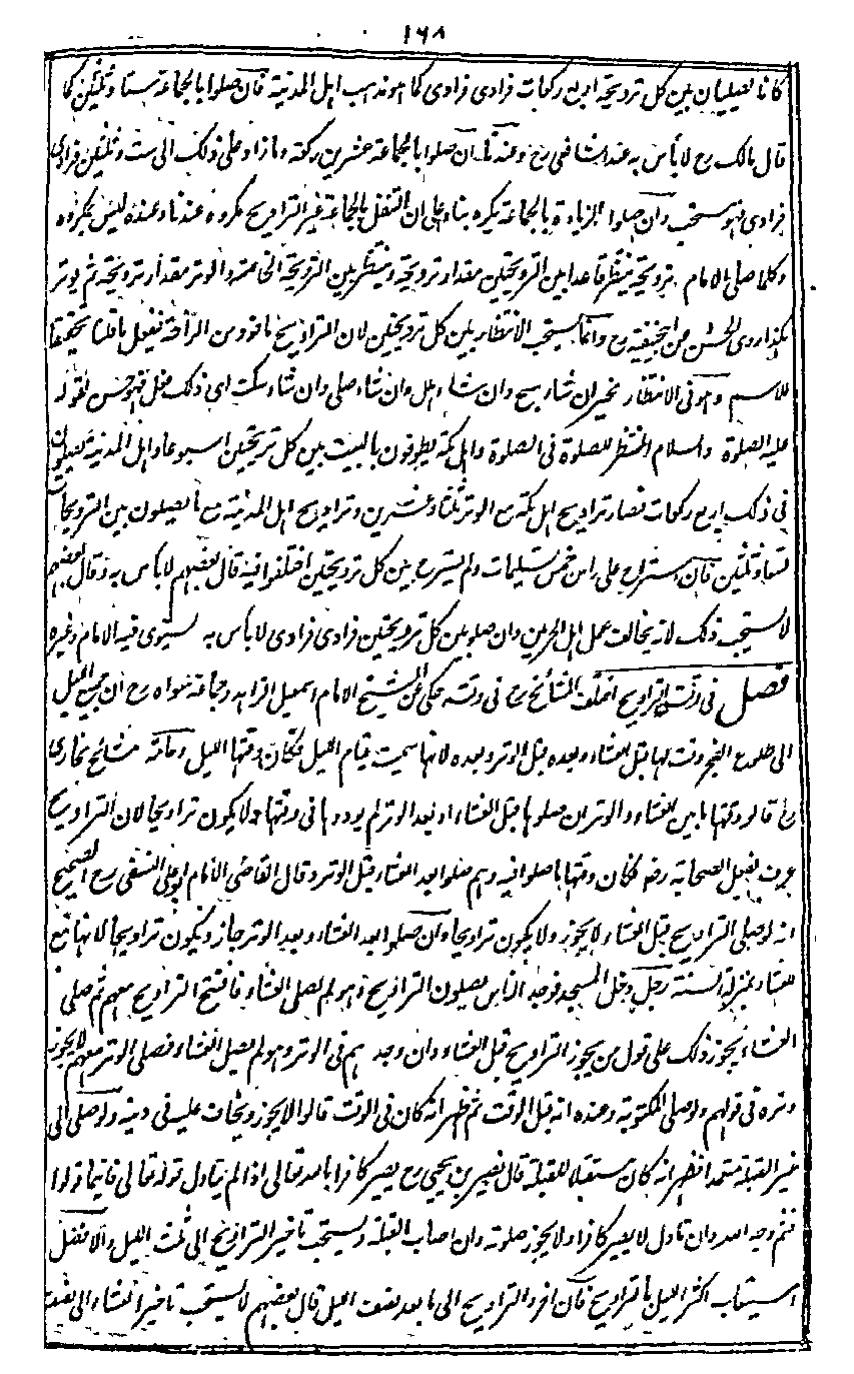 ١٦٨
كانا يصليان بين كل ترويحة اربع ركعات فرادى فرادى كما هو مذهب اهل المدينة فان صلوا بالجماعة ستا وثلثين كما
قال مالك رح لا بأس به عند الشافعي رح وعندنا ان صلوا بالجماعة عشرين ركعة وما زاد على ذلك الى ست وثلثين فرادى
فرادى فهو مستحب وان صلوا الزيادة بالجماعة يكره بناء على ان التنفل بالجماعة غير التراويح مكروه عندنا وعنده ليس بمكروه
وكلما صلى الامام ترويحة ينتظر قاعدا بين الترويحتين مقدار ترويحة وينتظر بين الترويحة الخامسة والوتر مقدار ترويحة ثم يوتر
هكذا روى الحسن عن ابيحنيفة رح وانما يستحب الانتظار بين كل ترويحتين لان التراويح ماخوذ من الراحة فيفعل ما قلنا تحقيقا
للاسم وهو في الانتظار يخير ان شاء سبح وان شاء هلل وان شاء صلى وان شاء سكت اي ذلك فعل فهو حسن لقوله
عليه الصلوة والسلام المنتظر للصلوة في الصلوة واهل مكة يطوفون بالبيت بين كل ترويحتين اسبوعا واهل المدينة يصلون
في ذلك اربع ركعات فصار تراويح اهل مكة مع الوتر ثلثا وعشرين وتراويح اهل المدينة مع ما يصلون بين الترويحات
تسعا وثلثين فان استراح على راس خمس تسليمات ولم يسترح بين كل ترويحتين اختلفوا فيه قال بعضهم لا بأس به وقال بعضهم
لا يستحب ذلك لانه يخالف عمل اهل الحرمين وان صلوا بين كل ترويحتين فرادى فرادى لا بأس به يستوى فيه الامام وغيره
فصل في وقت التراويح اختلف المشائخ رح في وقته حكى عن الشيخ الامام اسمعيل الزاهد وجماعة سواه رح ان جميع الليل
الى طلوع الفجر وقت لها قبل العشاء وبعده قبل الوتر وبعده لانها سميت قيام الليل فكان وقتها الليل وعامة مشائخ بخارى
رح قالوا وقتها ما بين العشاء والوتر ان صلوها قبل العشاء او بعد الوتر لم يودوها في وقتها ولا يكون تراويحا لان التراويح
عرف بفعل الصحابة رضه فكان وقتها ما صلوا فيه وهم صلوا بعد العشاء قبل الوتر وقال القاضي الامام ابو علي النسفي رح الصحيح
انه لو صلى التراويح قبل العشاء لا يجوز ولا يكون تراويحا وان صلوا بعد العشاء وبعد الوتر جاز ويكون تراويحا لانها تبع
للعشاء بمنزلة السنة رجل دخل المسجد فوجد الناس يصلون التراويح وهو لم يصلى العشاء فافتتح التراويح معهم ثم صلى
العشاء يجوز ذلك على قول من يجوز التراويح قبل العشاء وان وجدهم في الوتر وهو لم يصل العشاء فصلى الوتر معهم لا يجوز
وتره في قولهم ولو صلى المكتوبة وعنده انه قبل الوقت ثم ظهر انه كان في الوقت قالوا لا يجوز ويخاف عليه في دينه ولو صلى الى
غير القبلة متعمدا فظهر انه كان مستقبلا للقبلة قال نصير بن يحيى رح يصير كافرا بالله تعالى اذا لم يتاول قوله تعالى فاينما تولوا
فثم وجه الله وان تاول لا يصير كافرا ولا يجوز صلوته وان اصاب القبلة ويستحب تاخير التراويح الى ثلث الليل والافضل
استيعاب اكثر الليل بالتراويح فان اخروا التراويح الى ما بعد نصف الليل قال بعضهم لا يستحب تاخير العشاء الى نصف